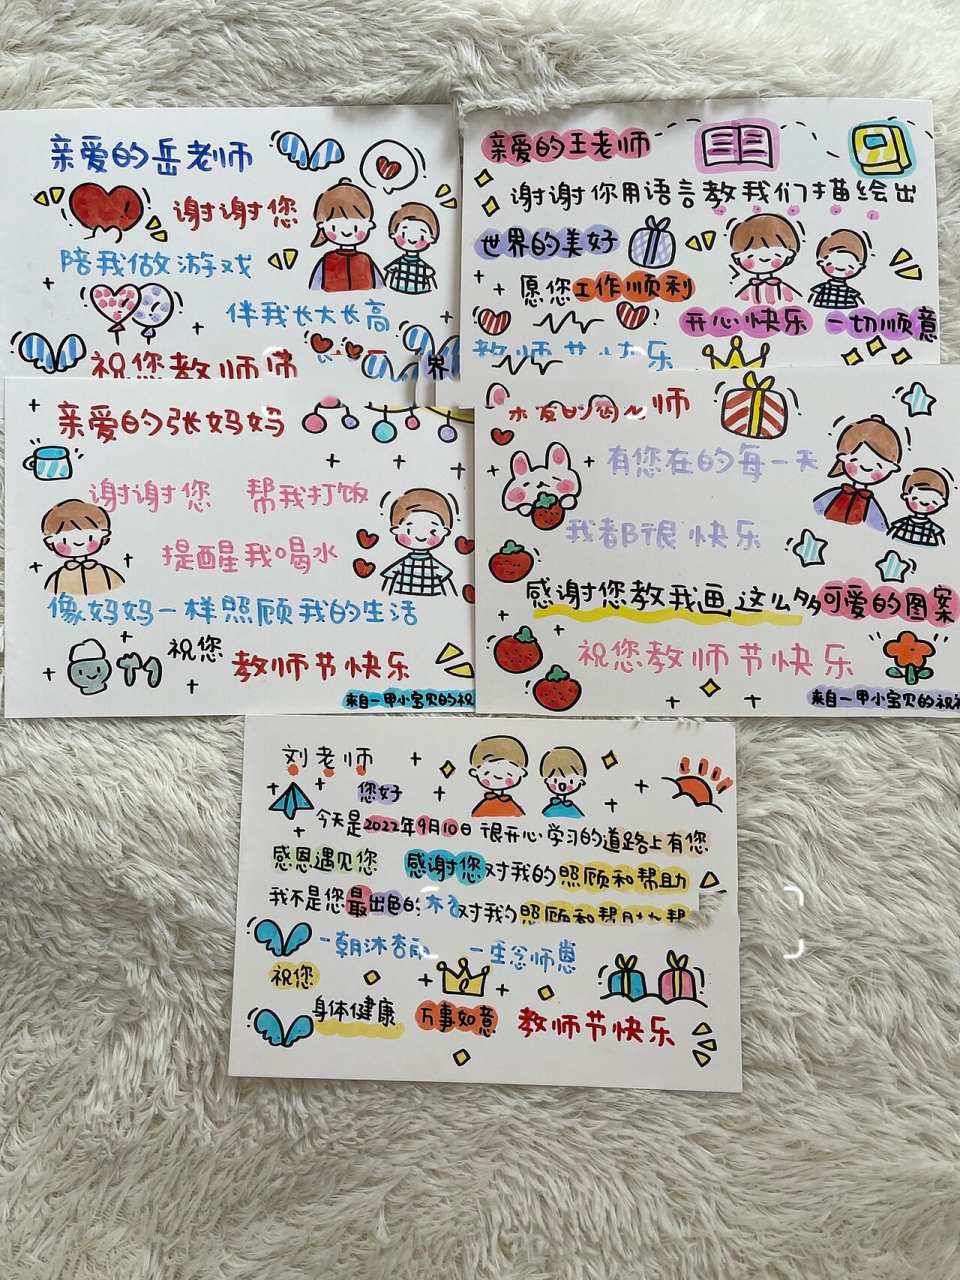 亲爱的岳老师
谢谢您
陪我做游戏
伴我长大长高
祝您教师节
亲爱的王老师
谢谢你用语言教我们描绘出
世界的美好
愿您工作顺利
开心快乐 一切顺意
教师节快乐
界
亲爱的张妈妈
谢谢您 帮我打饭
提醒我喝水
像妈妈一样照顾我的生活
祝您教师节快乐
来自一甲小宝贝的祝
师
有您在的每一天
我都很快乐
感谢您教我画这么多可爱的图案
祝您教师节快乐
来自一甲小宝贝的祝
刘老师
您好
今天是2022年9月10日 很开心学习的道路上有您
感恩遇见您 感谢您对我的照顾和帮助
我不是您最出色的 对我的照顾和帮
一朝沐杏雨 一生念师恩
祝您
身体健康 万事如意 教师节快乐